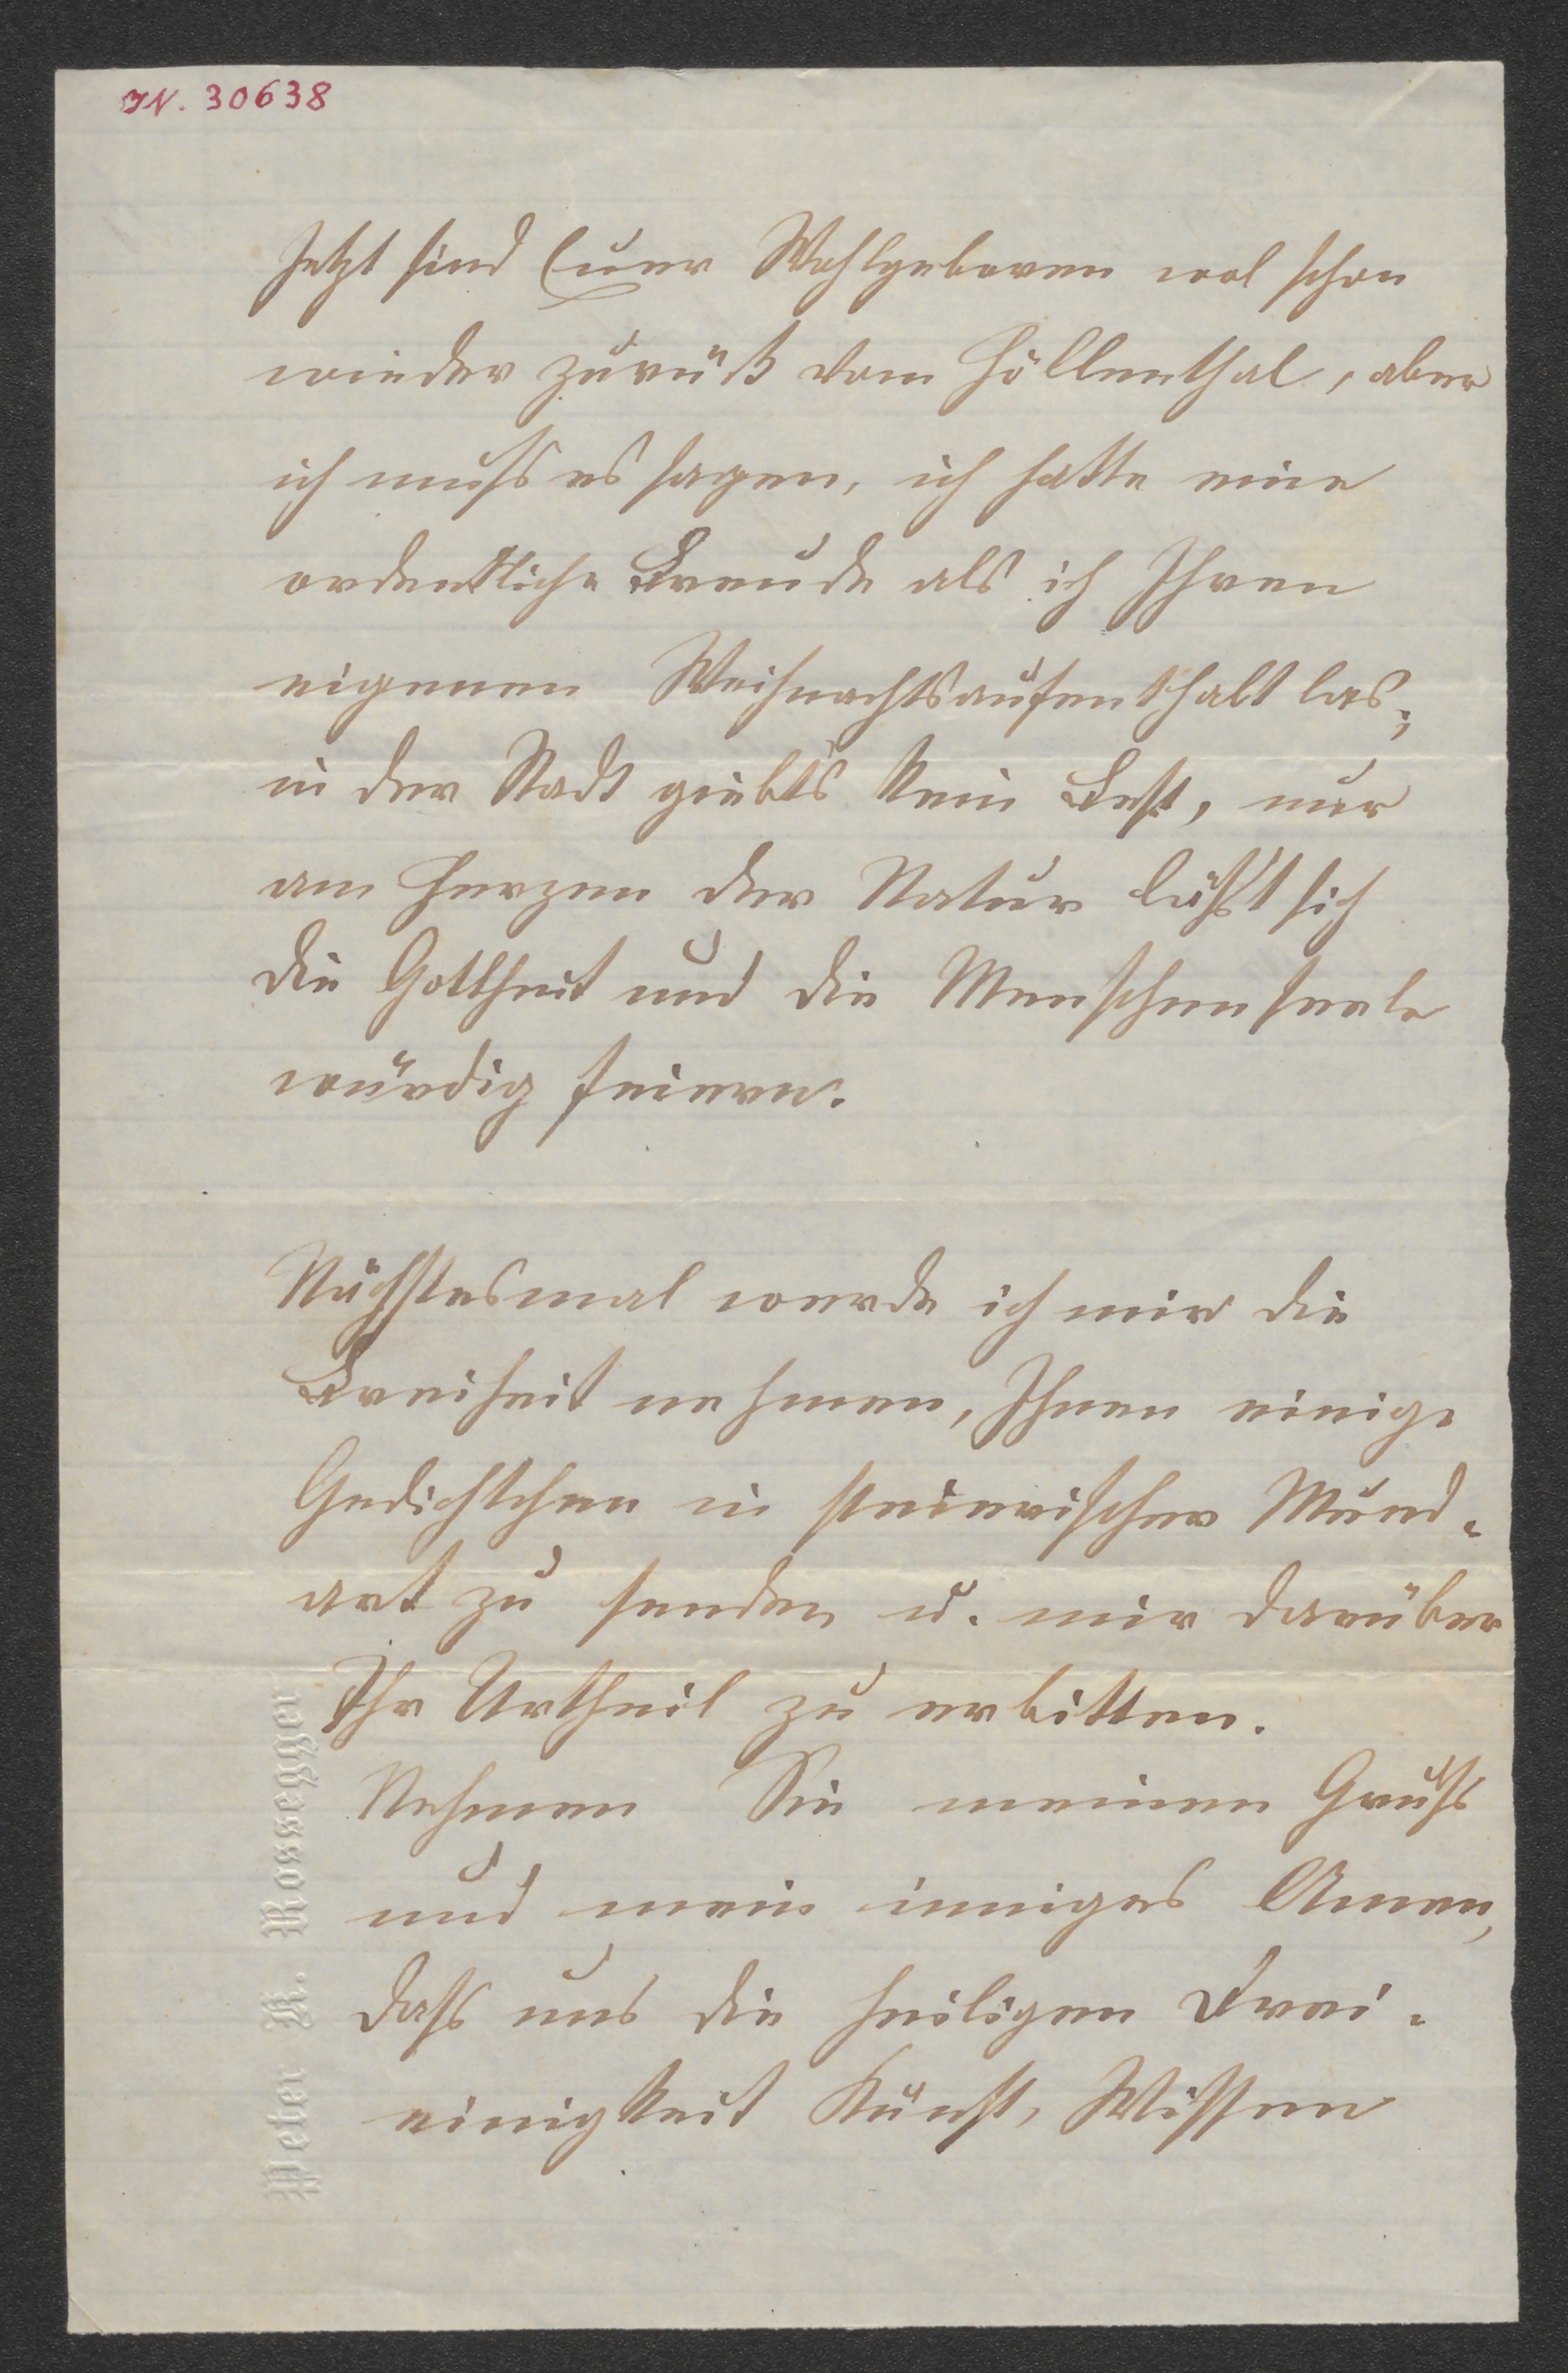 IN. 30638
Jetzt sind Euer Wohlgeboren wol schon
wieder zurück vom Höllenthal, aber
ich muß es sagen, ich hatte eine
ordentliche Freude als ich Ihren
eigenen Weihnachtsaufenthalt las;
in der Stadt giebt's kein Fest, nur
am Herzen der Natur läßt sich
die Gottheit und die Menschenseele
würdig feiern.
Nächstesmal werde ich mir die
Freiheit nehmen, Ihnen einige
Gedichtchen in steierischer Mund-
art zu senden u. mir darüber
Ihr Urtheil zu erbitten.
Nehmen Sie meinen Gruß
und mein inniges Amen,
daß uns die heiligen Drei-
einigkeit Kunst, Wissen
Peter K. Rossegger